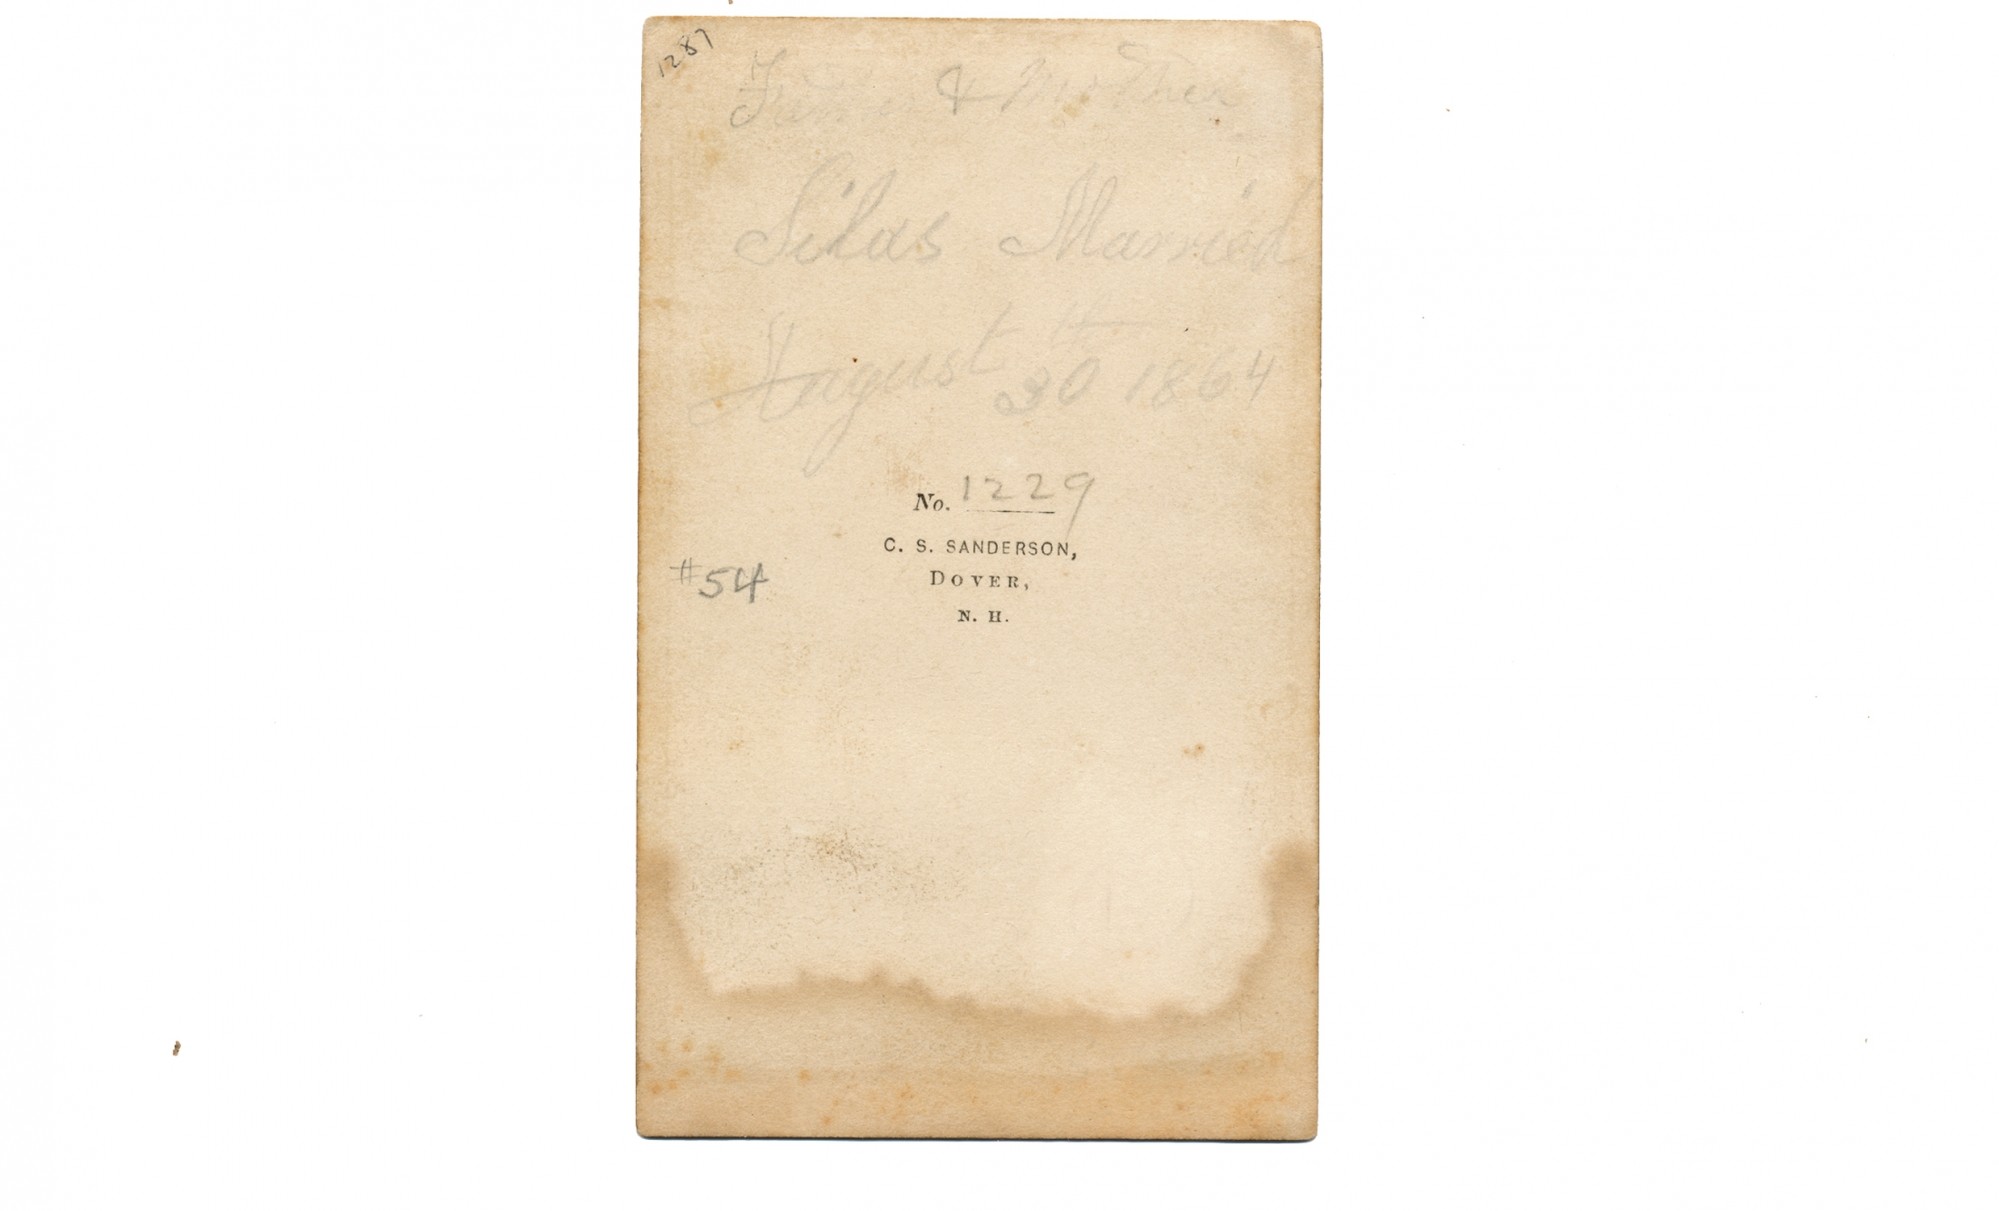 1287
Father & Mother
Silas Married
August 30th 1864
No. 1229
C. S. SANDERSON,
DOVER,
N. H.
#54